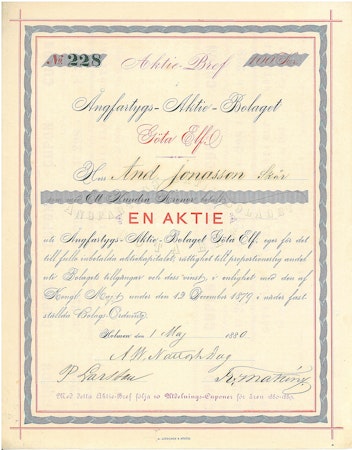 No 228
Aktie-Bref
100 Kr.
Ångfartygs-Aktie-Bolaget
Göta Elf.
Herr And. Jonasson Skår
som med Ett Hundra Kronor betalt
EN AKTIE
uti Ångfartygs-Aktie-Bolaget Göta Elf, eger för det
till fullo inbetalda aktiekapitalet rättighet till proportionerlig andel
uti Bolagets tillgångar och dess vinst, i enlighet med den af
Kongl. Maj:t under den 12 December 1879 i nåder fast-
stälda Bolags-Ordning.
1 Maj 1880.
A.W. Natt och Dag
P Larsson
Med detta Aktie-Bref följa 10 Utdelnings-Cuponer för åren 1880-1889.